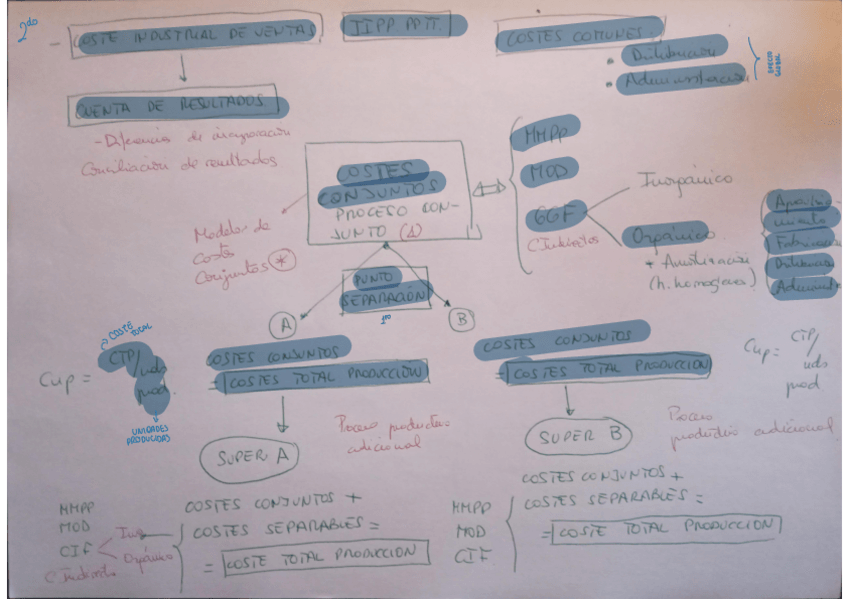 2do
- COSTE INDUSTRIAL DE VENTAS
IIPP PPTT.
COSTES COMUNES.
• Distribución
• Administración
CUENTA DE RESULTADOS
- Diferencias de incorporación
Conciliación de resultados
COSTES
CONJUNTOS
PROCESO CON-
JUNTO (1)
MMPP
MOD
GGF
C Indirectos
Inorgánico
Orgánico
(h. homogéneas)
Aprovisio-
namiento
Fabricación
Distribución
Administ
Modelos de
Costes
Conjuntos *
PUNTO
SEPARACIÓN
1ro
A
B
COSTE TOTAL
Cup = CTP/
uds
prod.
UNIDADES
PRODUCIDAS
COSTES CONJUNTOS
= COSTES TOTAL PRODUCCIÓN
COSTES CONJUNTOS
= COSTES TOTAL PRODUCCIÓN
Cup = CTP/
uds
prod.
Proceso productivo
adicional
Proceso
productivo adicional
SUPER A
SUPER B
MMPP
MOD
CIF
C Indirectos
Inorg
Orgánico
COSTES CONJUNTOS +
COSTES SEPARABLES =
= COSTE TOTAL PRODUCCION
MMPP
MOD
CIF
COSTES CONJUNTOS +
COSTES SEPARABLES =
= COSTE TOTAL PRODUCCION